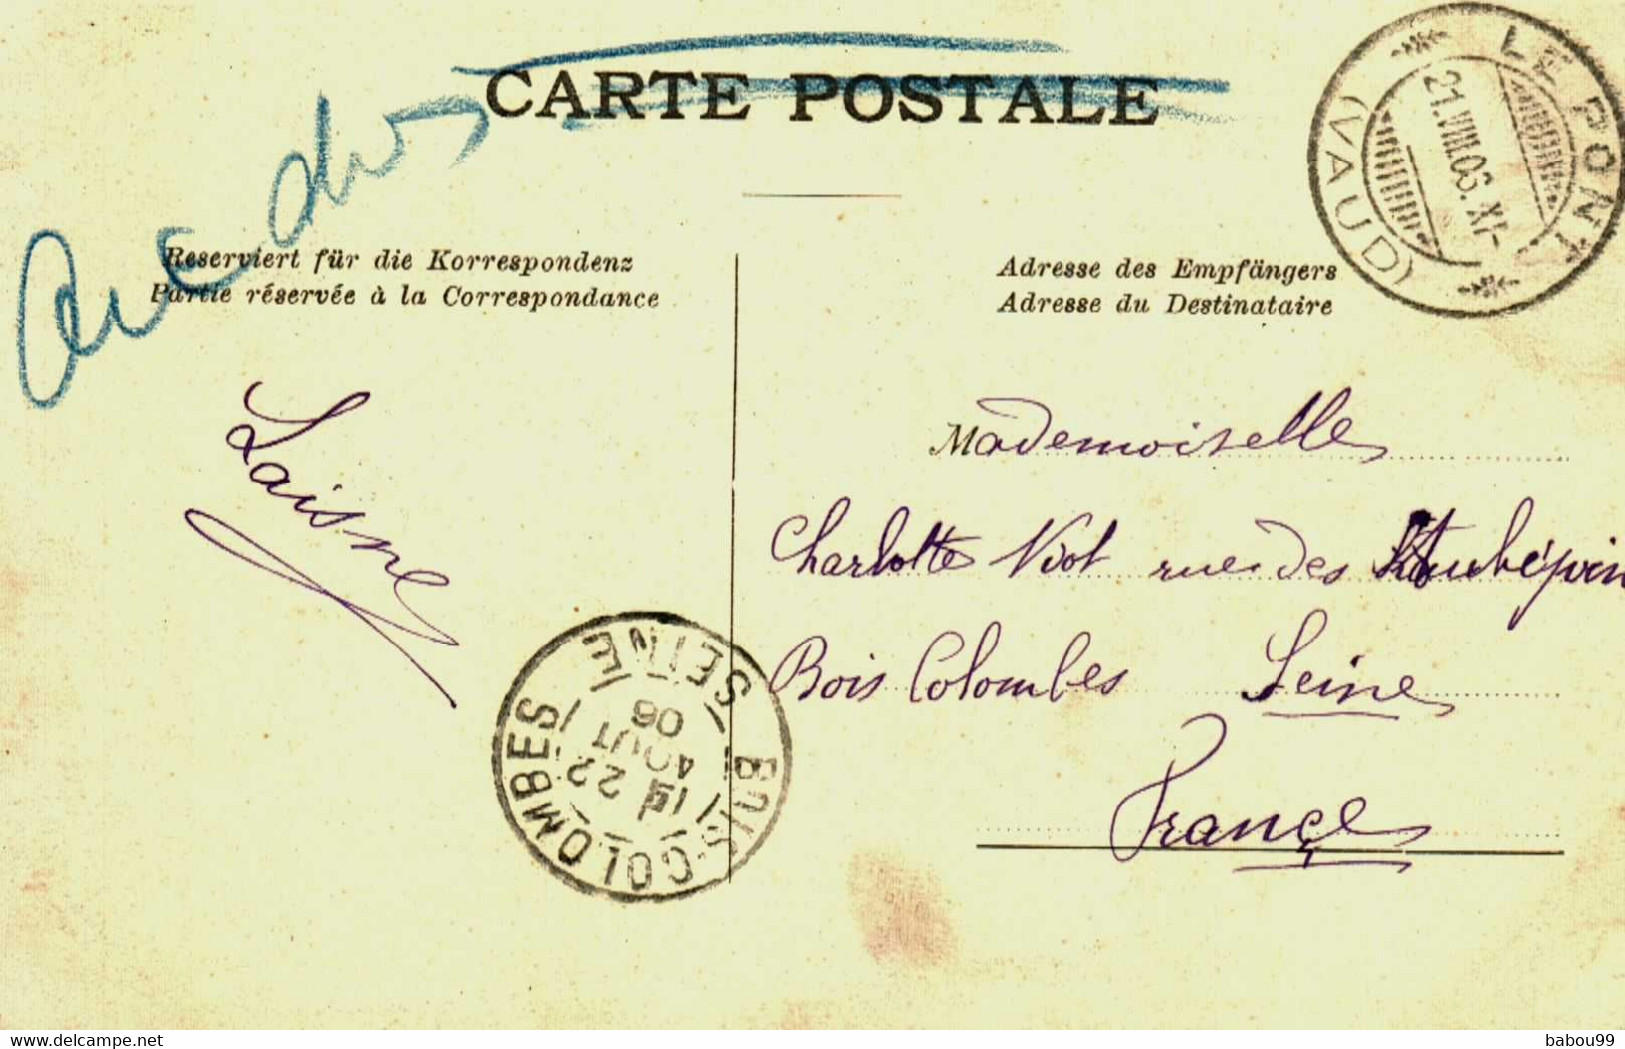 CARTE POSTALE
LE PONT
21.VIII.06.XI-
(VAUD)
Reserviert für die Korrespondenz
Partie réservée à la Correspondance
Adresse des Empfängers
Adresse du Destinataire
Laisne
Mademoiselle
Charlotte Viot rue des Aubépin
Bois Colombes Seine
France
BOIS-COLOMBES
22
AOUT
06
SEINE
delcampe.net
babou99